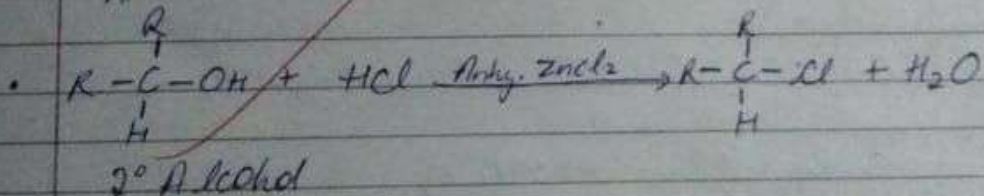 R R
• R - C - OH + HCl Anhy. ZnCl₂ → R - C - Cl + H₂O
H H
2° Alcohol